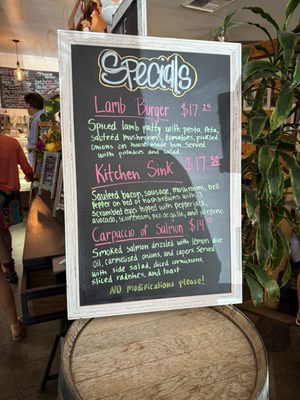 Specials
Lamb Burger $17.25
Spiced lamb patty with pesto, feta,
sauteed mushrooms, tomatoes, pickled
onions on house made bun. Served
with potatoes and salad.
Kitchen Sink $17.50
Sauteed bacon, sausage, mushrooms, bell
pepper on bed of hashbrowns with
scrambled eggs topped with pepper jack,
avocado, sourcream, pico de gallo, and jalepeno
Carpaccio of Salmon $14
Smoked salmon drizzled with lemon olive
oil, carmelized onions, and capers. Served
with side salad, diced cornichons,
sliced radishes, and toast
No modifications please!